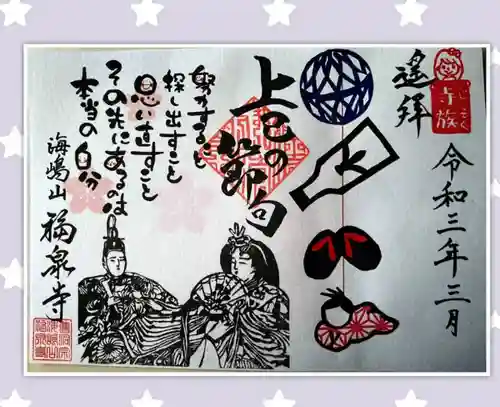 遙拝
寺族
令和三年三月
上巳の節句
すること
探し出すこと
思い直すこと
その先にあるのは
本当の自分
海嶋山
福泉寺